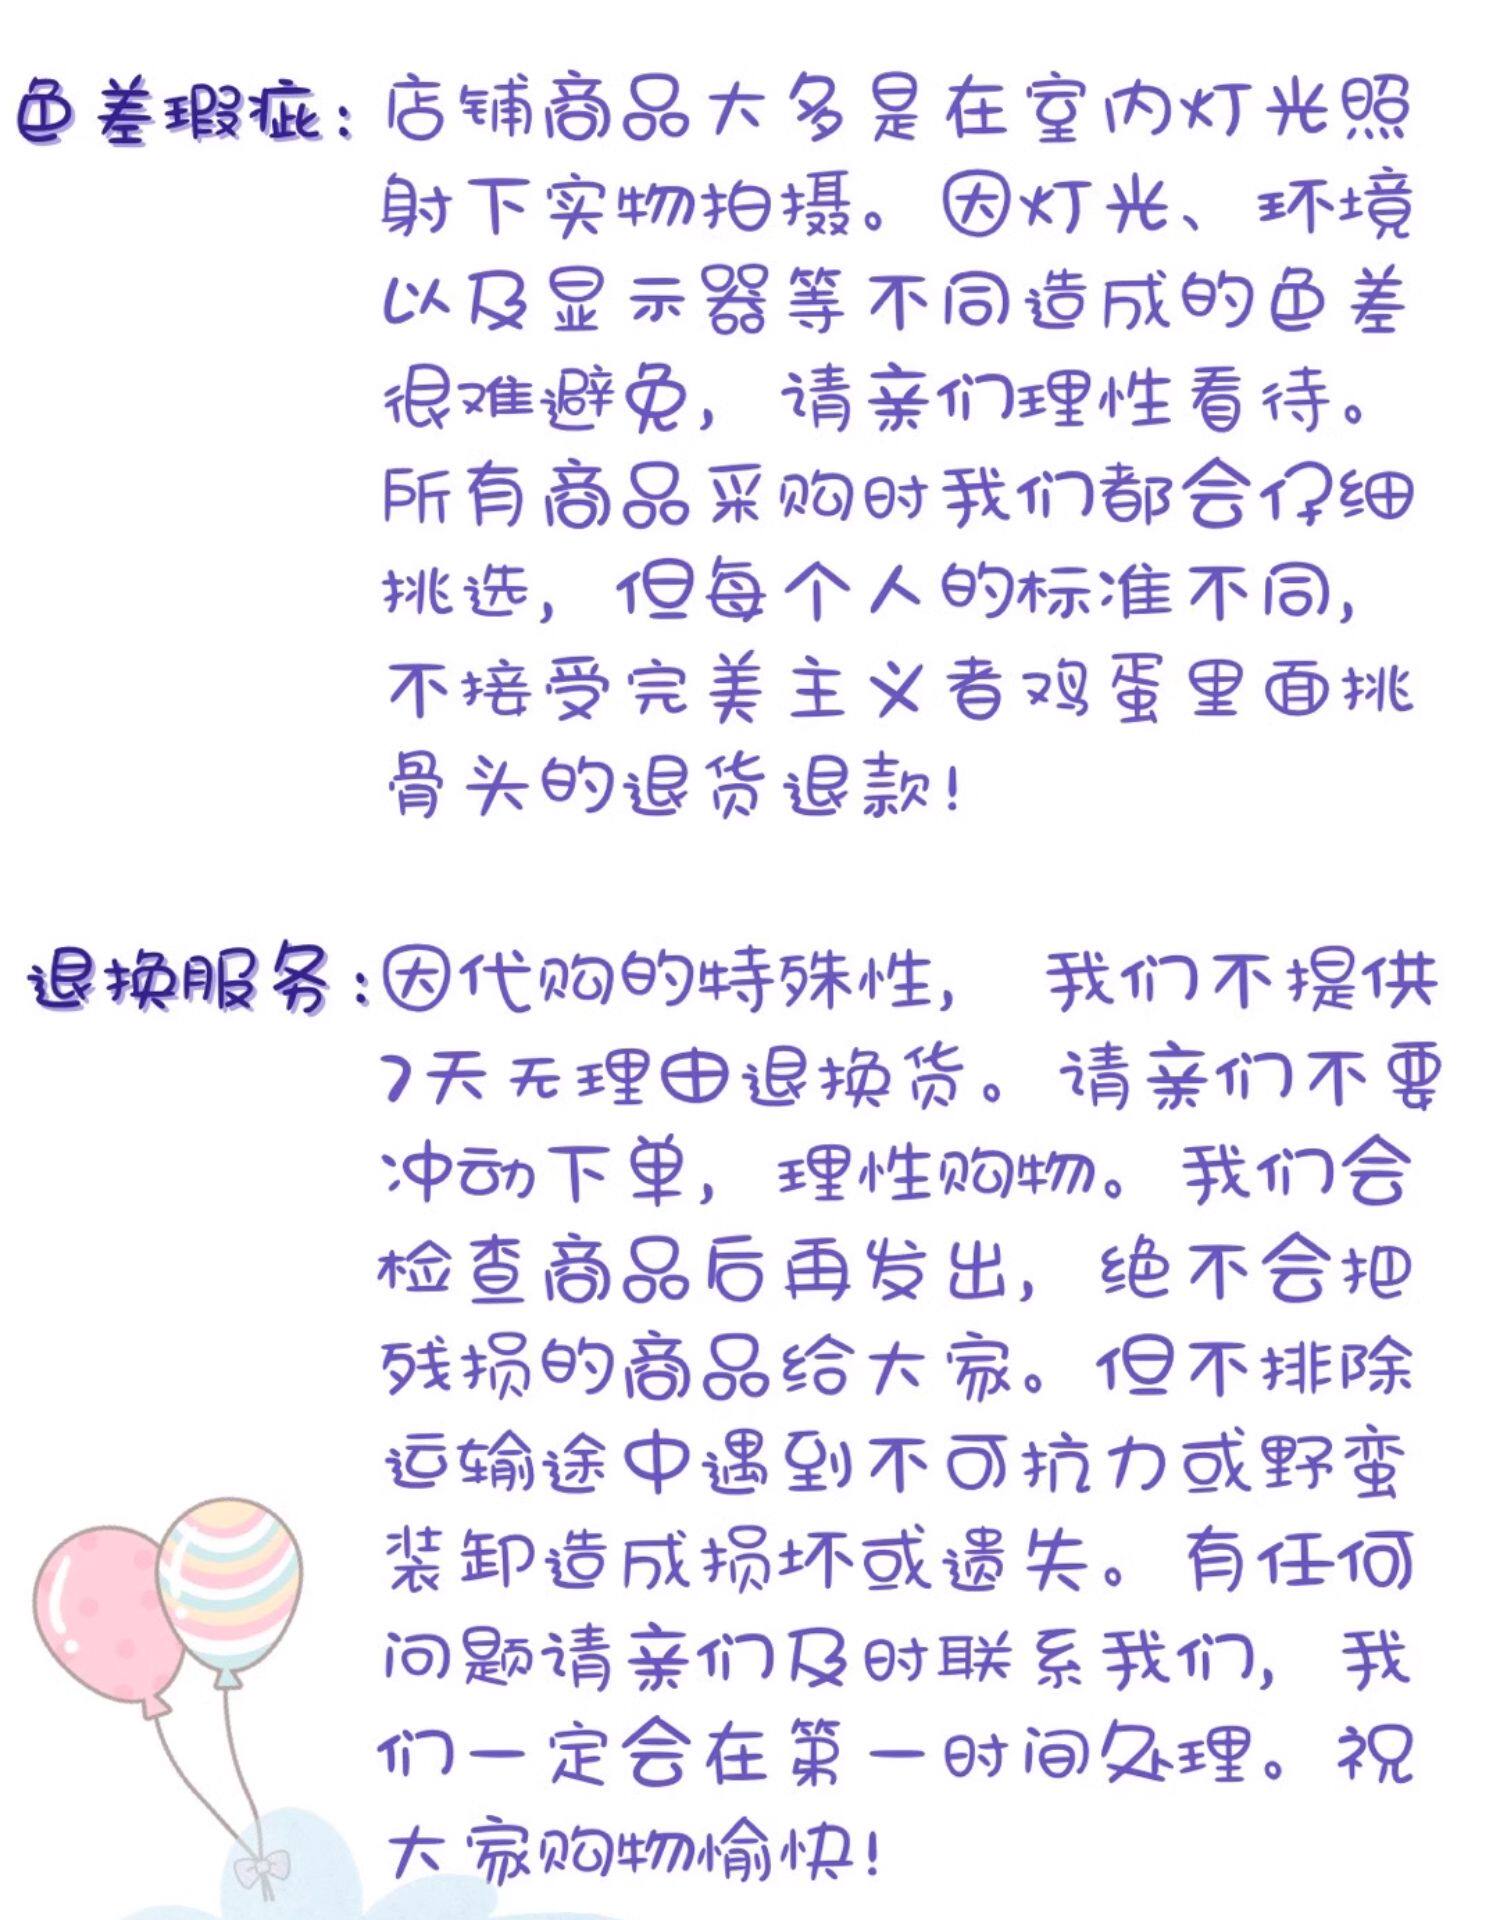 色差瑕疵：店铺商品大多是在室内灯光照
射下实物拍摄。因灯光、环境
以及显示器等不同造成的色差
很难避免，请亲们理性看待。
所有商品采购时我们都会仔细
挑选，但每个人的标准不同，
不接受完美主义者鸡蛋里面挑
骨头的退货退款！
退换服务：因代购的特殊性，我们不提供
7天无理由退换货。请亲们不要
冲动下单，理性购物。我们会
检查商品后再发出，绝不会把
残损的商品给大家。但不排除
运输途中遇到不可抗力或野蛮
装卸造成损坏或遗失。有任何
问题请亲们及时联系我们，我
们一定会在第一时间处理。祝
大家购物愉快！